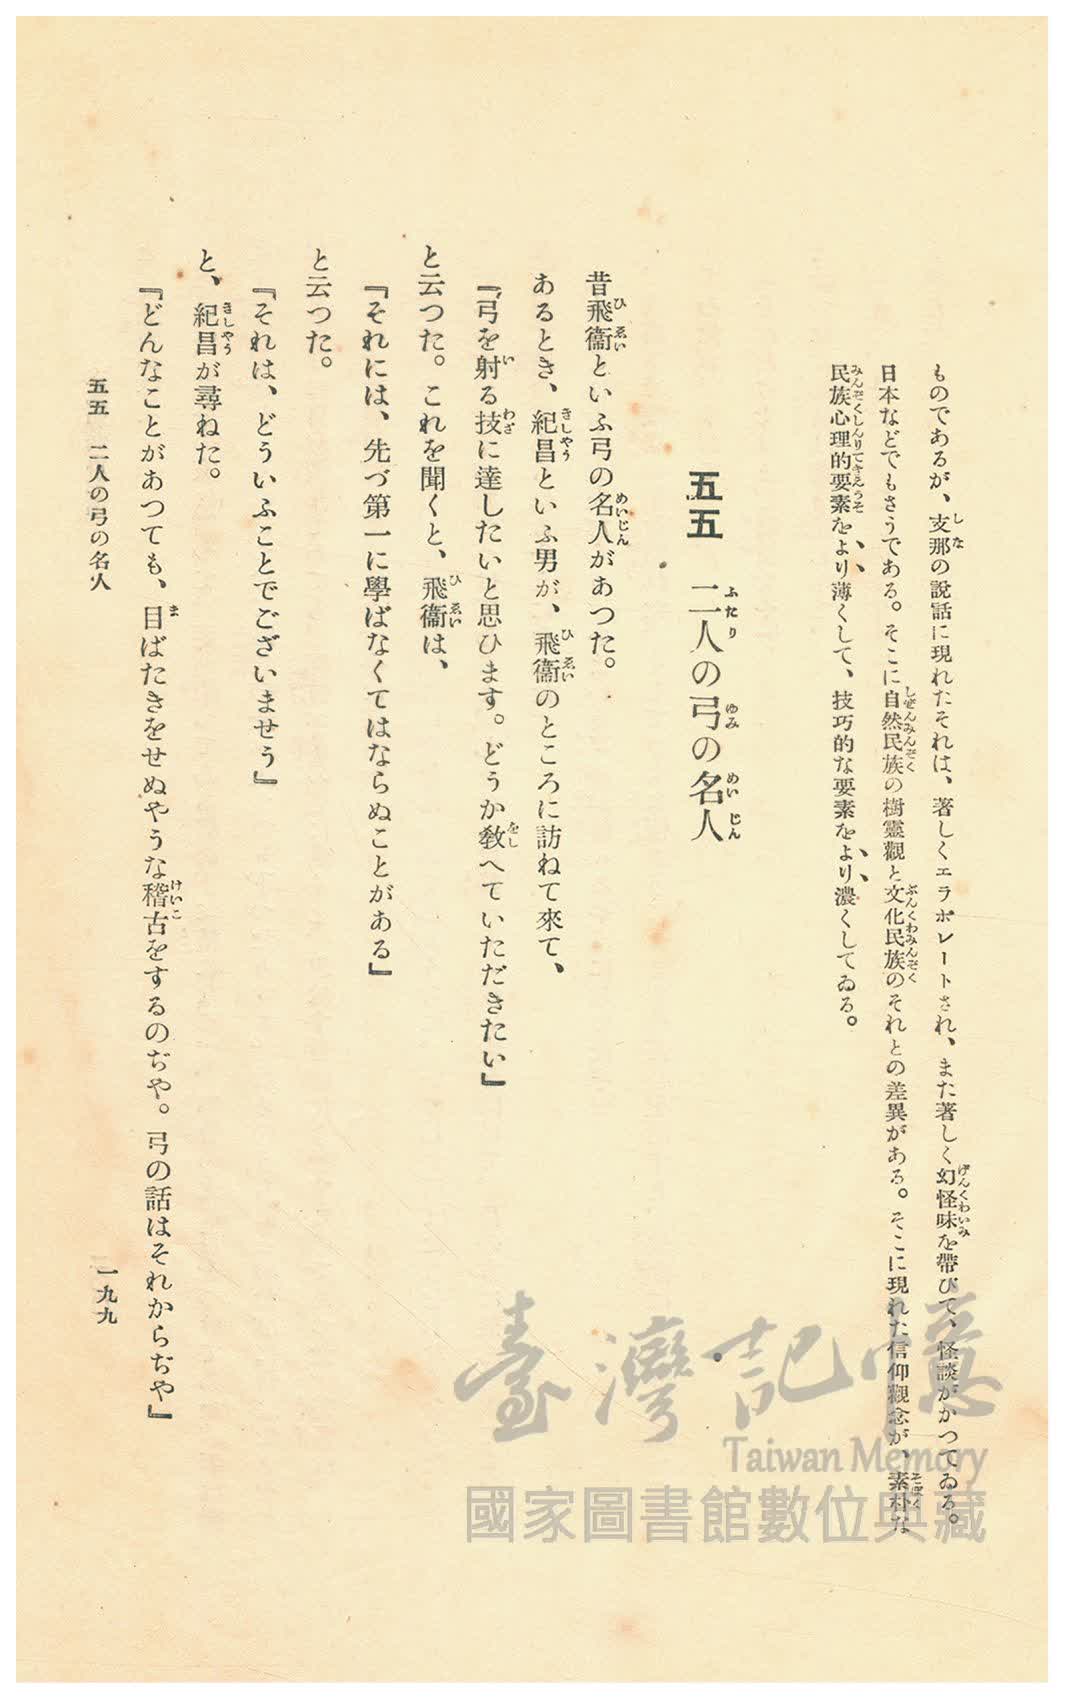 ものであるが、支那の說話に現れたそれは、著しくエラボレートされ、また著しく幻怪味を帶びて、怪談がかつてゐる。
日本などでもさうである。そこに自然民族の樹靈觀と文化民族のそれとの差異がある。そこに現れた信仰觀念が、素朴な
民族心理的要素をより薄くして、技巧的な要素をより濃くしてゐる。
五五 二人の弓の名人
昔飛衞といふ弓の名人があつた。
あるとき、紀昌といふ男が、飛衞のところに訪ねて來て、
『弓を射る技に達したいと思ひます。どうか敎へていただきたい』
と云つた。これを聞くと、飛衞は、
『それには、先づ第一に學ばなくてはならぬことがある』
と云つた。
『それは、どういふことでございませう』
と、紀昌が尋ねた。
『どんなことがあつても、目ばたきをせぬやうな稽古をするのぢや。弓の話はそれからぢや』
五五 二人の弓の名人
一九九
臺灣記憶
Taiwan Memory
國家圖書館數位典藏